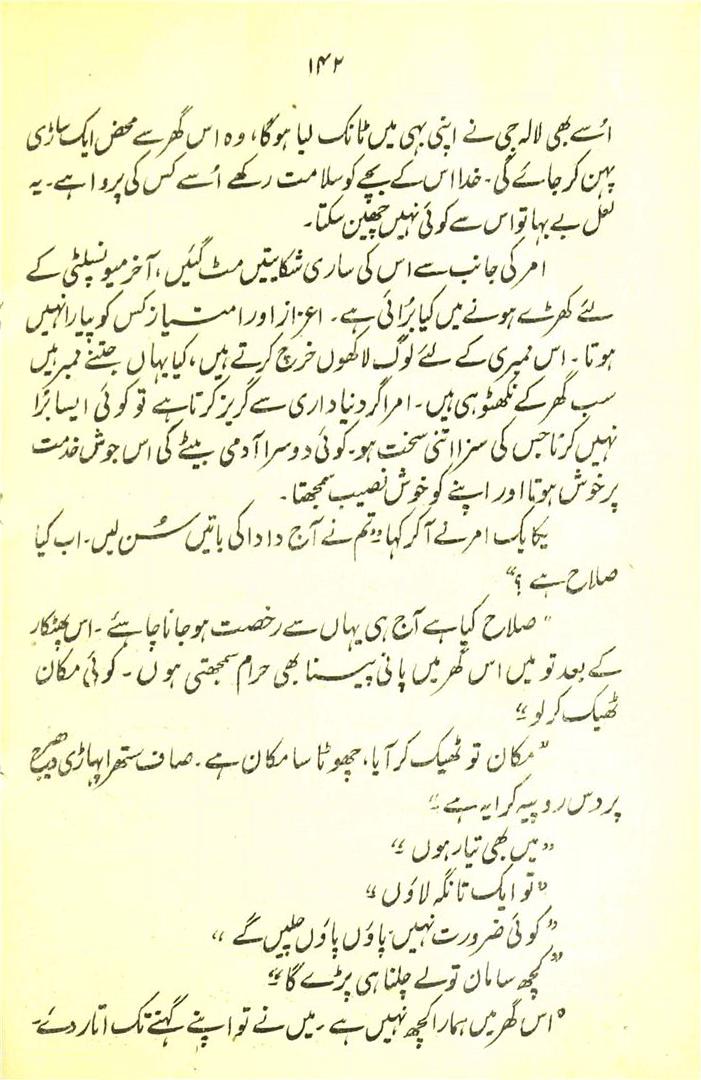 ۱۴۲
اُسے بھی لالہ جی نے اپنی بہی میں ٹانک لیا ہوگا، وہ اس گھر سے محض ایک ساڑی
پہن کر جائے گی۔ خدا اس کے بچے کو سلامت رکھے اُسے کس کی پروا ہے۔ یہ
لعل بے بہا تو اس سے کوئی نہیں چھین سکتا۔
امر کی جانب سے اس کی ساری شکایتیں مٹ گئیں، آخر میونسپلٹی کے
لئے کھڑے ہونے میں کیا بُرائی ہے۔ اعزاز اور امتیاز کس کو پیارا نہیں
ہوتا۔ اس ممبری کے لئے لوگ لاکھوں خرچ کرتے ہیں، کیا یہاں جتنے ممبر ہیں
سب گھر کے نکھٹو ہی ہیں۔ امر اگر دنیا داری سے گریز کرتا ہے تو کوئی ایسا بُرا
نہیں کرتا جس کی سزا اتنی سخت ہو۔ کوئی دوسرا آدمی بیٹے کی اس جوش خدمت
پر خوش ہوتا اور اپنے کو خوش نصیب سمجھتا۔
یکایک امر نے آکر کہا "تم نے آج دادا کی باتیں سُن لیں۔ اب کیا
صلاح ہے ؟"
"صلاح کیا ہے آج ہی یہاں سے رخصت ہو جانا چاہئے۔ اس پھٹکار
کے بعد تو میں اس گھر میں پانی پینا بھی حرام سمجھتی ہوں۔ کوئی مکان
ٹھیک کر لو"
"مکان تو ٹھیک کر آیا، چھوٹا سا مکان ہے۔ صاف ستھرا پہاڑی دھیرج
پر دس روپیہ کرایہ ہے"
"میں بھی تیار ہوں"
"تو ایک تانگہ لاؤں"
"کوئی ضرورت نہیں پاؤں پاؤں چلیں گے"
"کچھ سامان تو لے چلنا ہی پڑے گا"
"اس گھر میں ہمارا کچھ نہیں ہے۔ میں نے تو اپنے گہنے تک اتار دئے۔